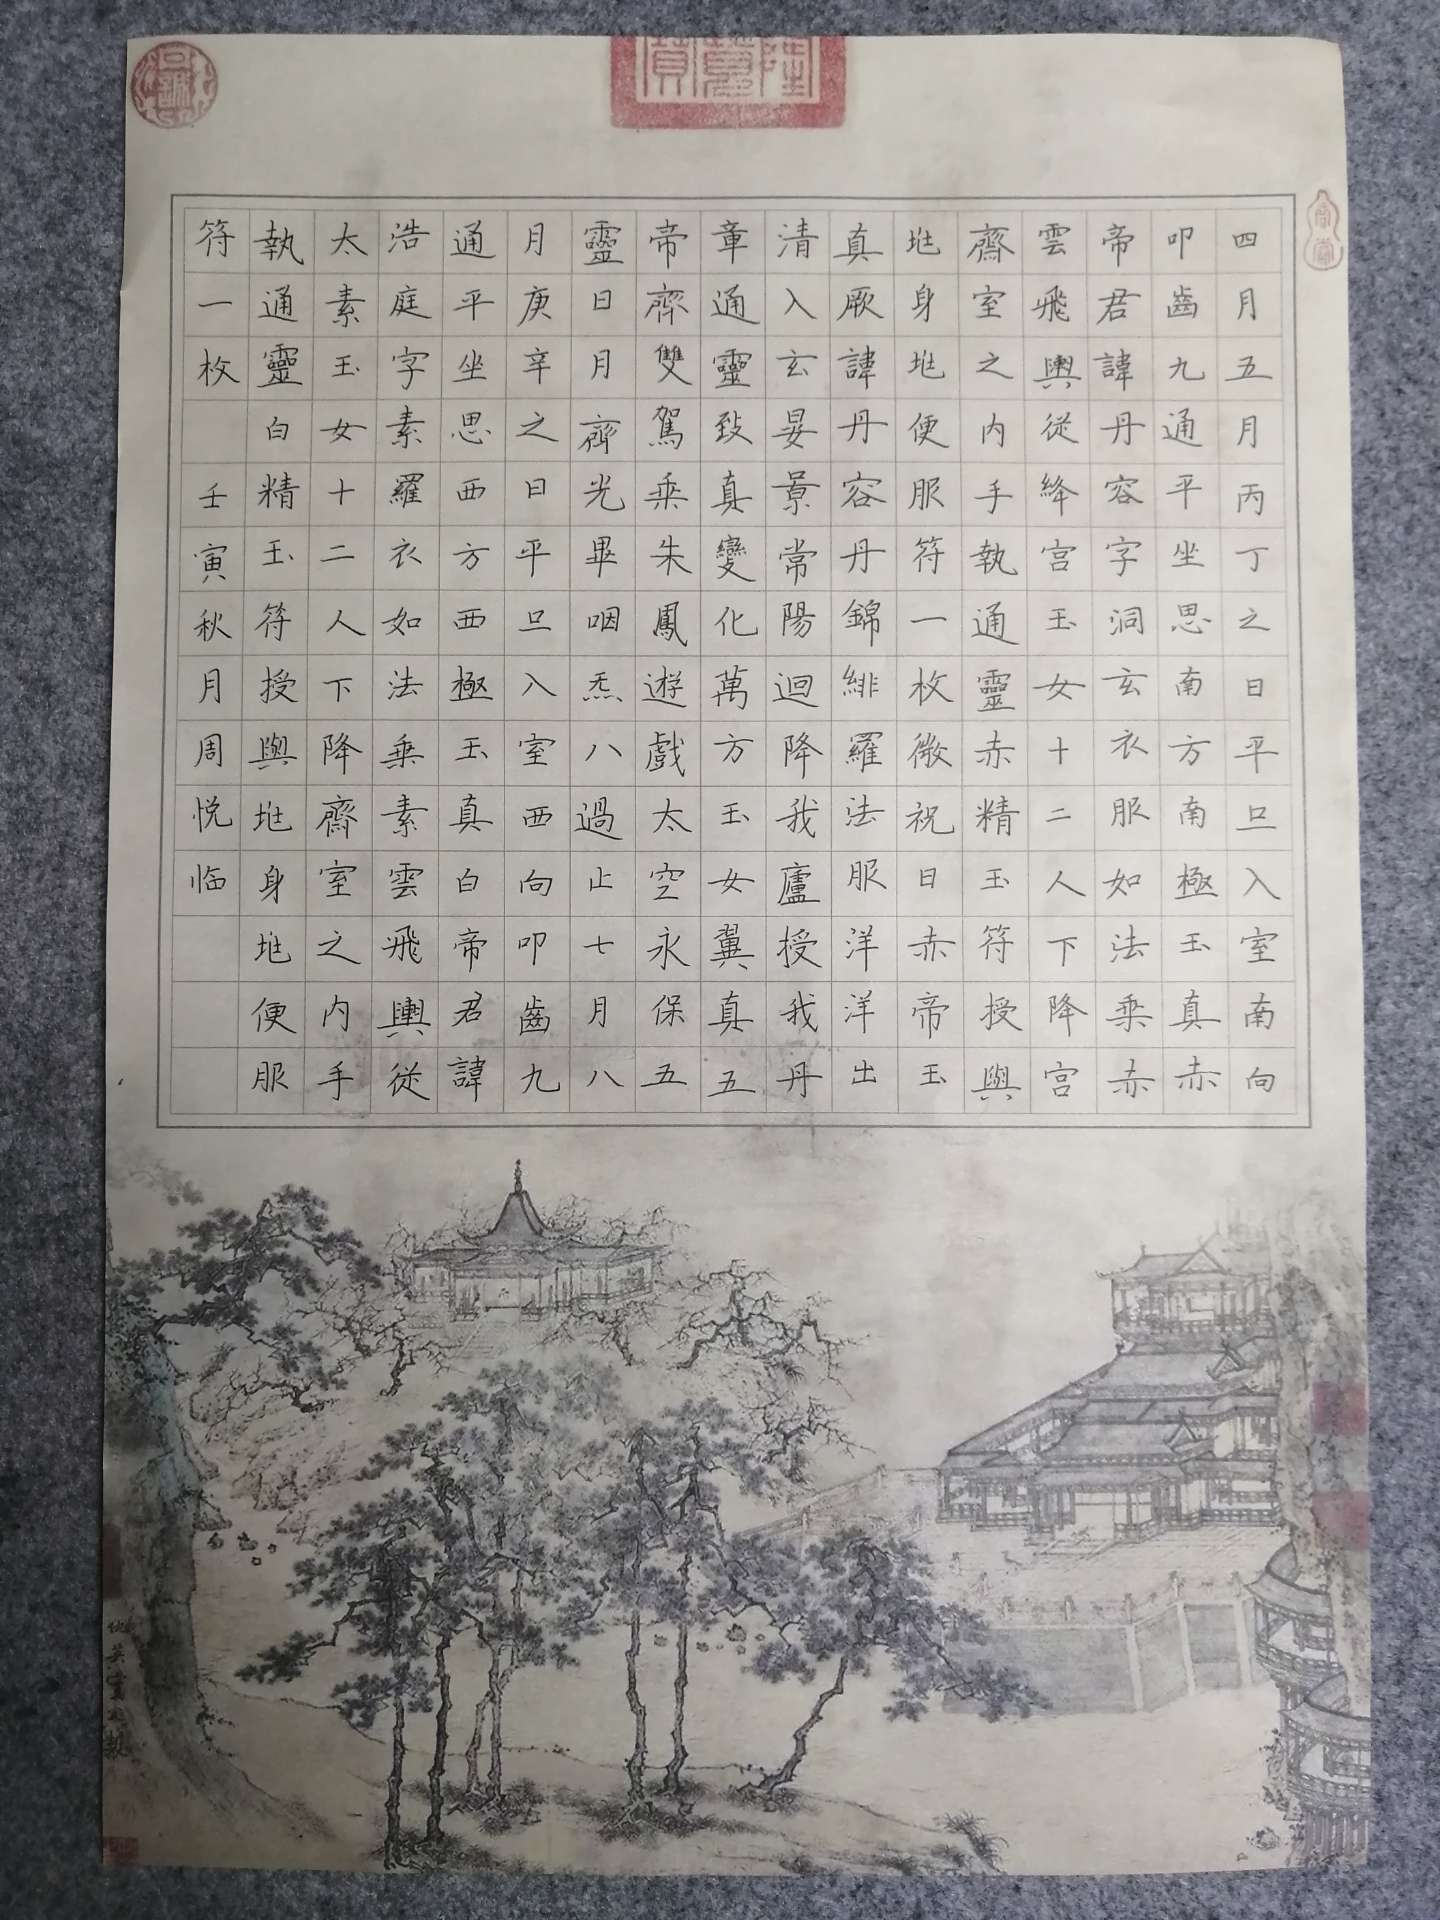 四月五月丙丁之日平旦入室南向
叩齒九通平坐思南方南極玉真赤
帝君諱丹容字洞玄衣服如法乘赤
雲飛輿從絳宮玉女十二人下降宮
齋室之內手執通靈赤精玉符授與
兆身兆便服符一枚微祝日赤帝玉
真厥諱丹容丹錦緋羅法服洋洋出
清入玄晏景常陽迴降我廬授我丹
章通靈致真變化萬方玉女翼真五
帝齊雙駕乘朱鳳遊戲太空永保五
靈日月齊光畢咽炁八過止七月八
月庚辛之日平旦入室西向叩齒九
通平坐思西方西極玉真白帝君諱
浩庭字素羅衣如法乘素雲飛輿從
太素玉女十二人下降齋室之內手
執通靈白精玉符授與兆身兆便服
符一枚 壬寅秋月周悦临